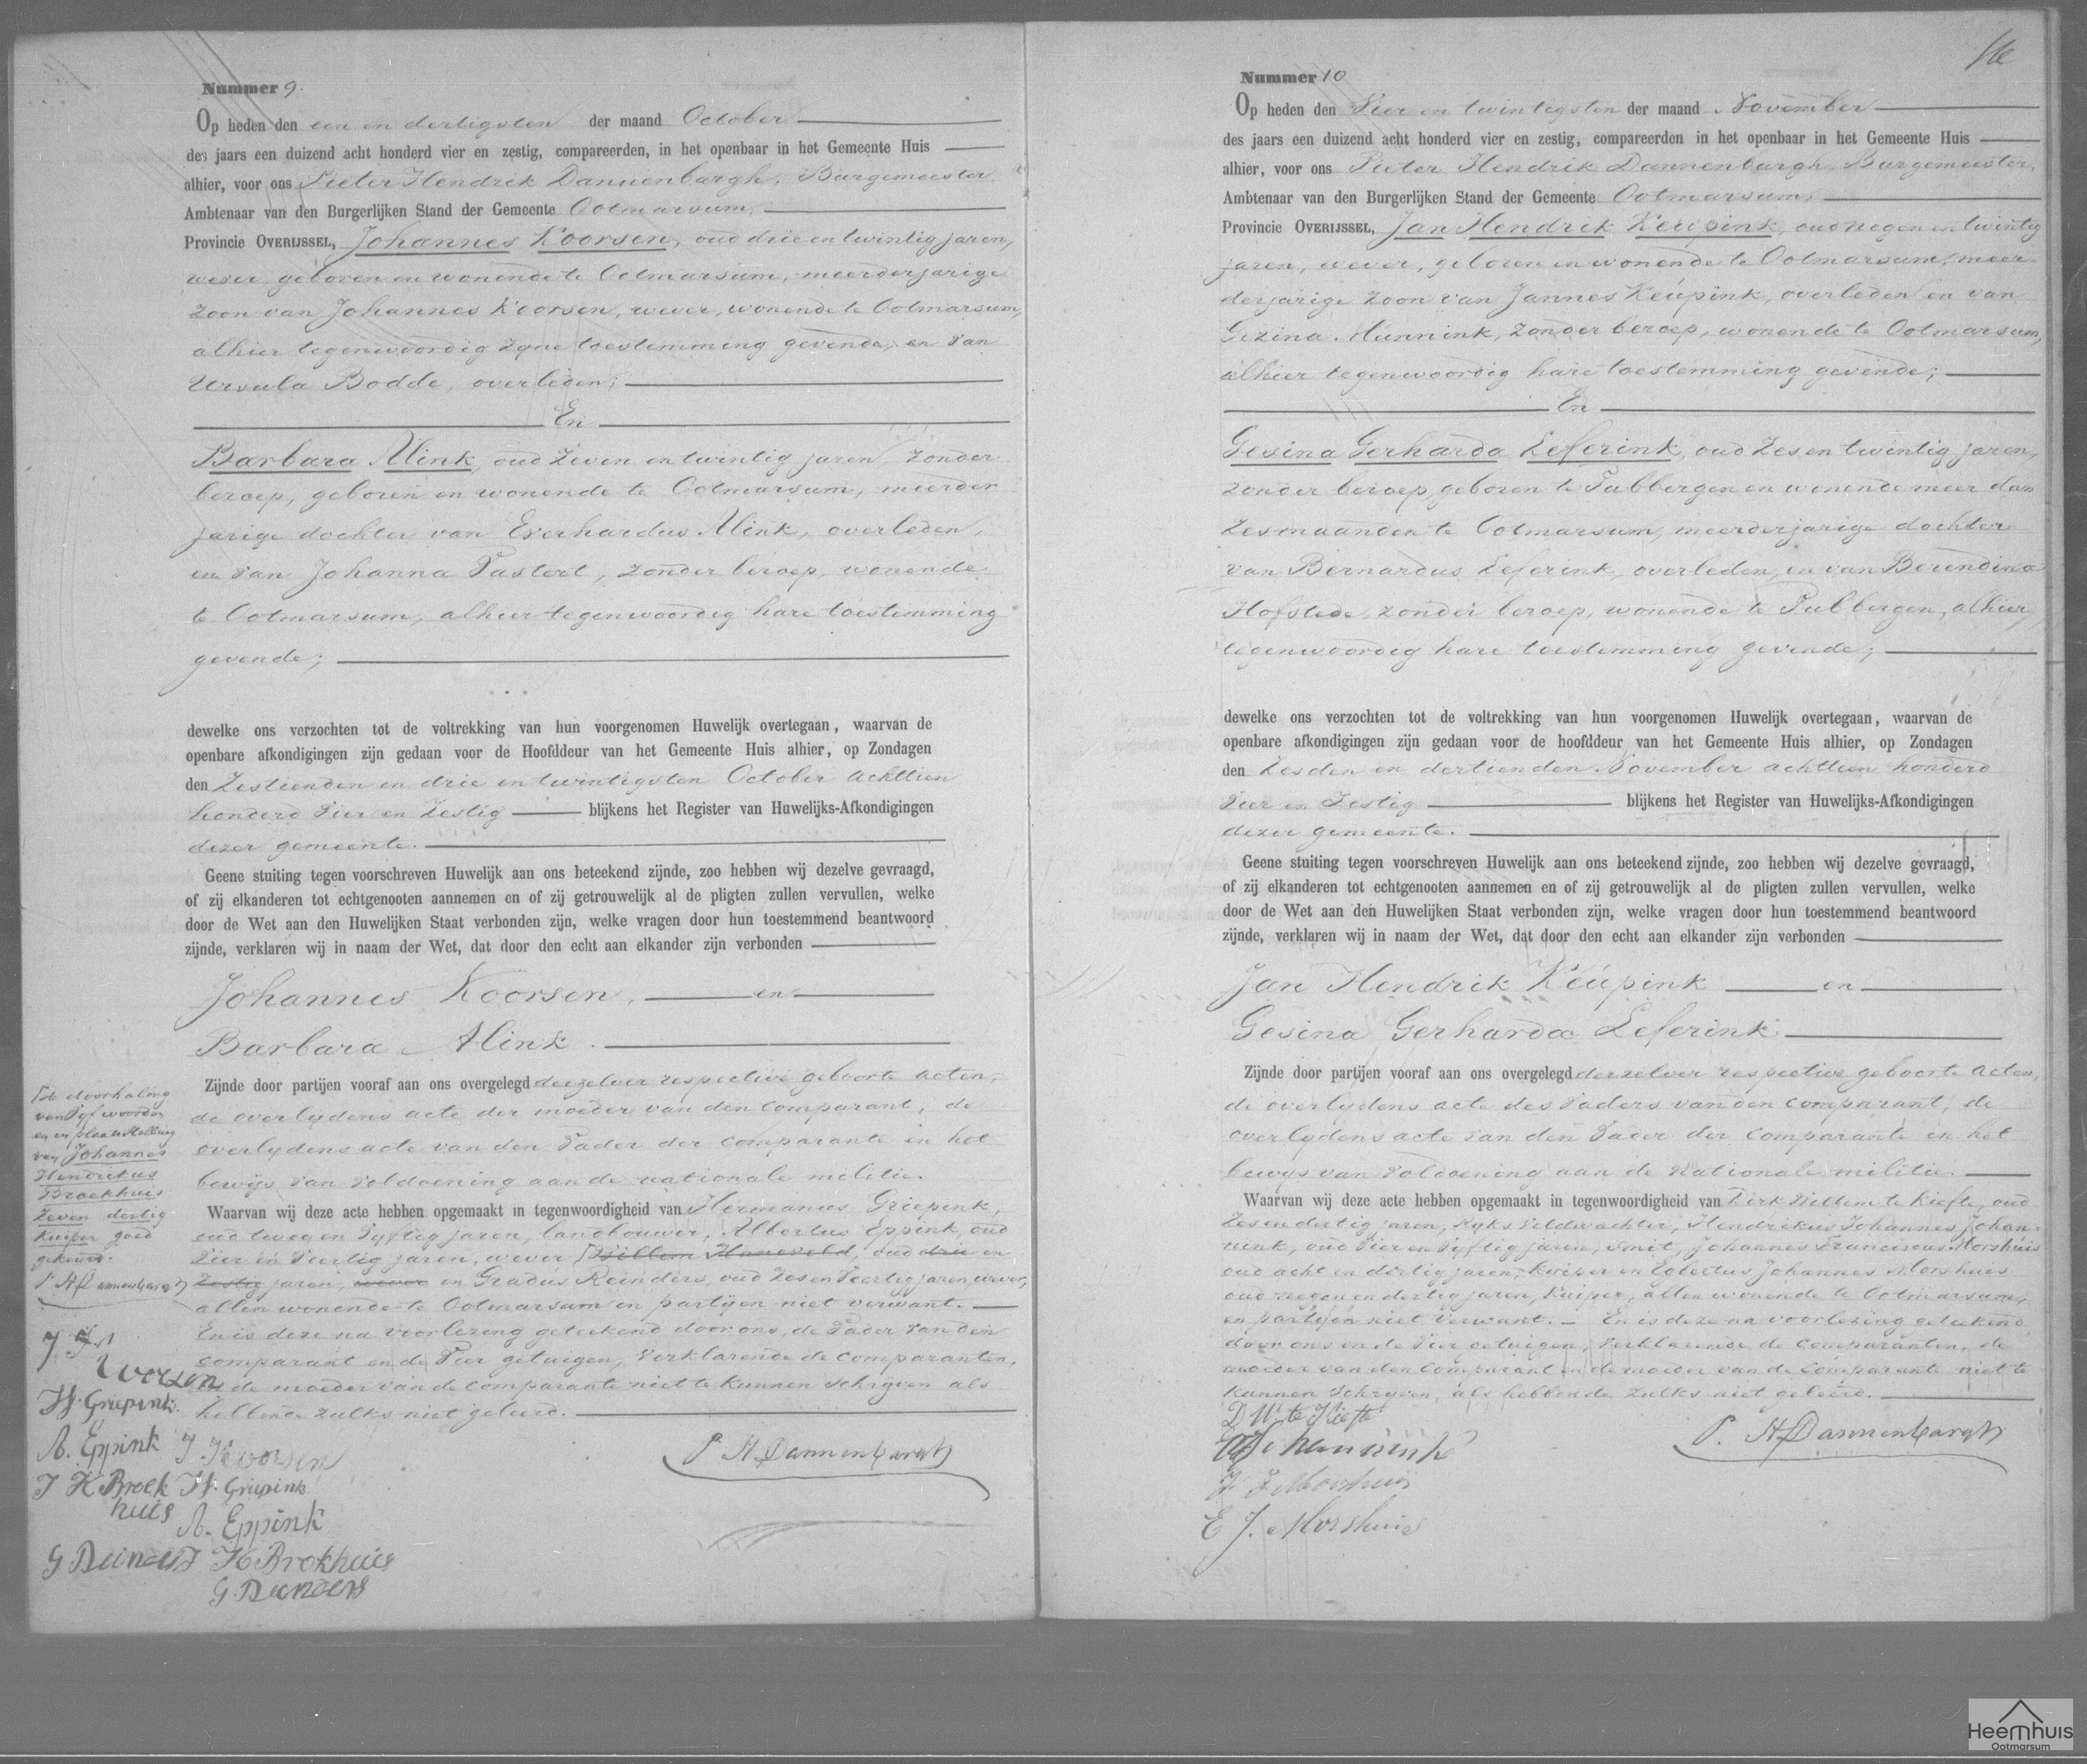 Nummer 9.
Op heden den een en dertigsten der maand October
des jaars een duizend acht honderd vier en zestig, compareerden, in het openbaar in het Gemeente Huis
alhier, voor ons Pieter Hendrik Dannenbargh, Burgemeester
Ambtenaar van den Burgerlijken Stand der Gemeente Ootmarsum,
Provincie OVERIJSSEL, Johannes Koorsen, oud drie en twintig jaren,
wever, geboren en wonende te Ootmarsum, meerderjarige
zoon van Johannes Koorsen, wever, wonende te Ootmarsum,
alhier tegenwoordig zyne toestemming gevende, en van
Ursula Bodde, overleden;
En
Barbara Alink, oud zeven en twintig jaren, zonder
beroep, geboren en wonende te Ootmarsum, meerder
jarige dochter van Everhardus Alink, overleden,
en van Johanna Tastert, zonder beroep, wonende
te Ootmarsum, alhier tegenwoordig hare toestemming
gevende;
dewelke ons verzochten tot de voltrekking van hun voorgenomen Huwelijk overtegaan, waarvan de
openbare afkondigingen zijn gedaan voor de Hoofddeur van het Gemeente Huis alhier, op Zondagen
den Zestienden en drie en twintigsten October achttien
honderd vier en zestig blijkens het Register van Huwelijks-Afkondigingen
dezer gemeente.
Geene stuiting tegen voorschreven Huwelijk aan ons beteekend zijnde, zoo hebben wij dezelve gevraagd,
of zij elkanderen tot echtgenooten aannemen en of zij getrouwelijk al de pligten zullen vervullen, welke
door de Wet aan den Huwelijken Staat verbonden zijn, welke vragen door hun toestemmend beantwoord
zijnde, verklaren wij in naam der Wet, dat door den echt aan elkander zijn verbonden
Johannes Koorsen, en
Barbara Alink.
Zijnde door partijen vooraf aan ons overgelegd derzelver respective geboorte acten,
de overlydens acte der moeder van den comparant, de
overlydens acte van den Vader der comparante en het
bewijs van voldoening aan de nationale militie.
Waarvan wij deze acte hebben opgemaakt in tegenwoordigheid van Hermanus Griepink,
oud twee en vyftig jaren, landbouwer, Albertus Eppink, oud
vier en veertig jaren, wever, Willem Haneveld, oud drie en
zestig jaren, wever en Gradus Reinders, oud zes en veertig jaren, wever,
allen wonende te Ootmarsum en partyen niet verwant.
En is deze na voorlezing geteekend door ons, de Vader van den
comparant en de vier getuigen, verklarende de comparanten,
en de moeder van de comparante niet te kunnen schrijven als
hebbende zulks niet geleerd.
P. H. Dannenbargh
de doorhaling
van vyf woorden
en er plaatstelling
van Johannes
Hendrikus
Broekhuis
zeven dertig
Kuiper goed
gekeurd.
P H Dannenbargh
H. Griepink
A. Eppink
J H Broek
huis
J. Koorsen
H. Griepink
A. Eppink
J H Brokhuis
Nummer 10
Op heden den Vier en twintigsten der maand November
des jaars een duizend acht honderd vier en zestig, compareerden in het openbaar in het Gemeente Huis
alhier, voor ons Pieter Hendrik Dannenbargh, Burgemeester,
Ambtenaar van den Burgerlijken Stand der Gemeente Ootmarsum,
Provincie OVERIJSSEL, Jan Hendrik Keupink, oud negen en twintig
jaren, wever, geboren en wonende te Ootmarsum, meer
derjarige zoon van Jannes Keupink, overleden en van
Gezina Hunnink, zonder beroep, wonende te Ootmarsum,
alhier tegenwoordig hare toestemming gevende;
En
Gesina Gerharda Leferink, oud zes en twintig jaren,
zonder beroep, geboren te Tubbergen en wonende meer dan
zes maanden te Ootmarsum, meerderjarige dochter
van Bernardus Leferink, overleden, en van Berendina
Hofstede, zonder beroep, wonende te Tubbergen, alhier
tegenwoordig hare toestemming gevende;
dewelke ons verzochten tot de voltrekking van hun voorgenomen Huwelijk overtegaan, waarvan de
openbare afkondigingen zijn gedaan voor de hoofddeur van het Gemeente Huis alhier, op Zondagen
den Zesden en dertienden November achttien honderd
vier en zestig blijkens het Register van Huwelijks-Afkondigingen
dezer gemeente.
Geene stuiting tegen voorschreven Huwelijk aan ons beteekend zijnde, zoo hebben wij dezelve gevraagd,
of zij elkanderen tot echtgenooten aannemen en of zij getrouwelijk al de pligten zullen vervullen, welke
door de Wet aan den Huwelijken Staat verbonden zijn, welke vragen door hun toestemmend beantwoord
zijnde, verklaren wij in naam der Wet, dat door den echt aan elkander zijn verbonden
Jan Hendrik Keupink en
Gesina Gerharda Leferink.
Zijnde door partijen vooraf aan ons overgelegd derzelver respective geboorte acten,
de overlydens acte des Vaders van den comparant, de
overlydens acte van den Vader der comparante en het
bewys van voldoening aan de Nationale militie.
Waarvan wij deze acte hebben opgemaakt in tegenwoordigheid van Dirk Willem te Kiefte, oud
zes en dertig jaren, Ryks Veldwachter, Hendrikus Johannes Johan
nink, oud vier en vyftig jaren, smit, Johannes Franciscus Morshuis
oud acht en dertig jaren, Kuiper en Egbertus Johannes Morshuis
oud negen en dertig jaren, Kuiper, allen wonende te Ootmarsum,
en partyen niet verwant. En is deze na voorlezing geteekend
door ons en de vier getuigen, verklarende de comparanten, de
moeder van den comparant en de moeder van de comparante niet te
kunnen schryven, als hebbende zulks niet geleerd.
D W te Kiefte
P. H Dannenbargh
E J. Morshuis
Heemhuis
Ootmarsum